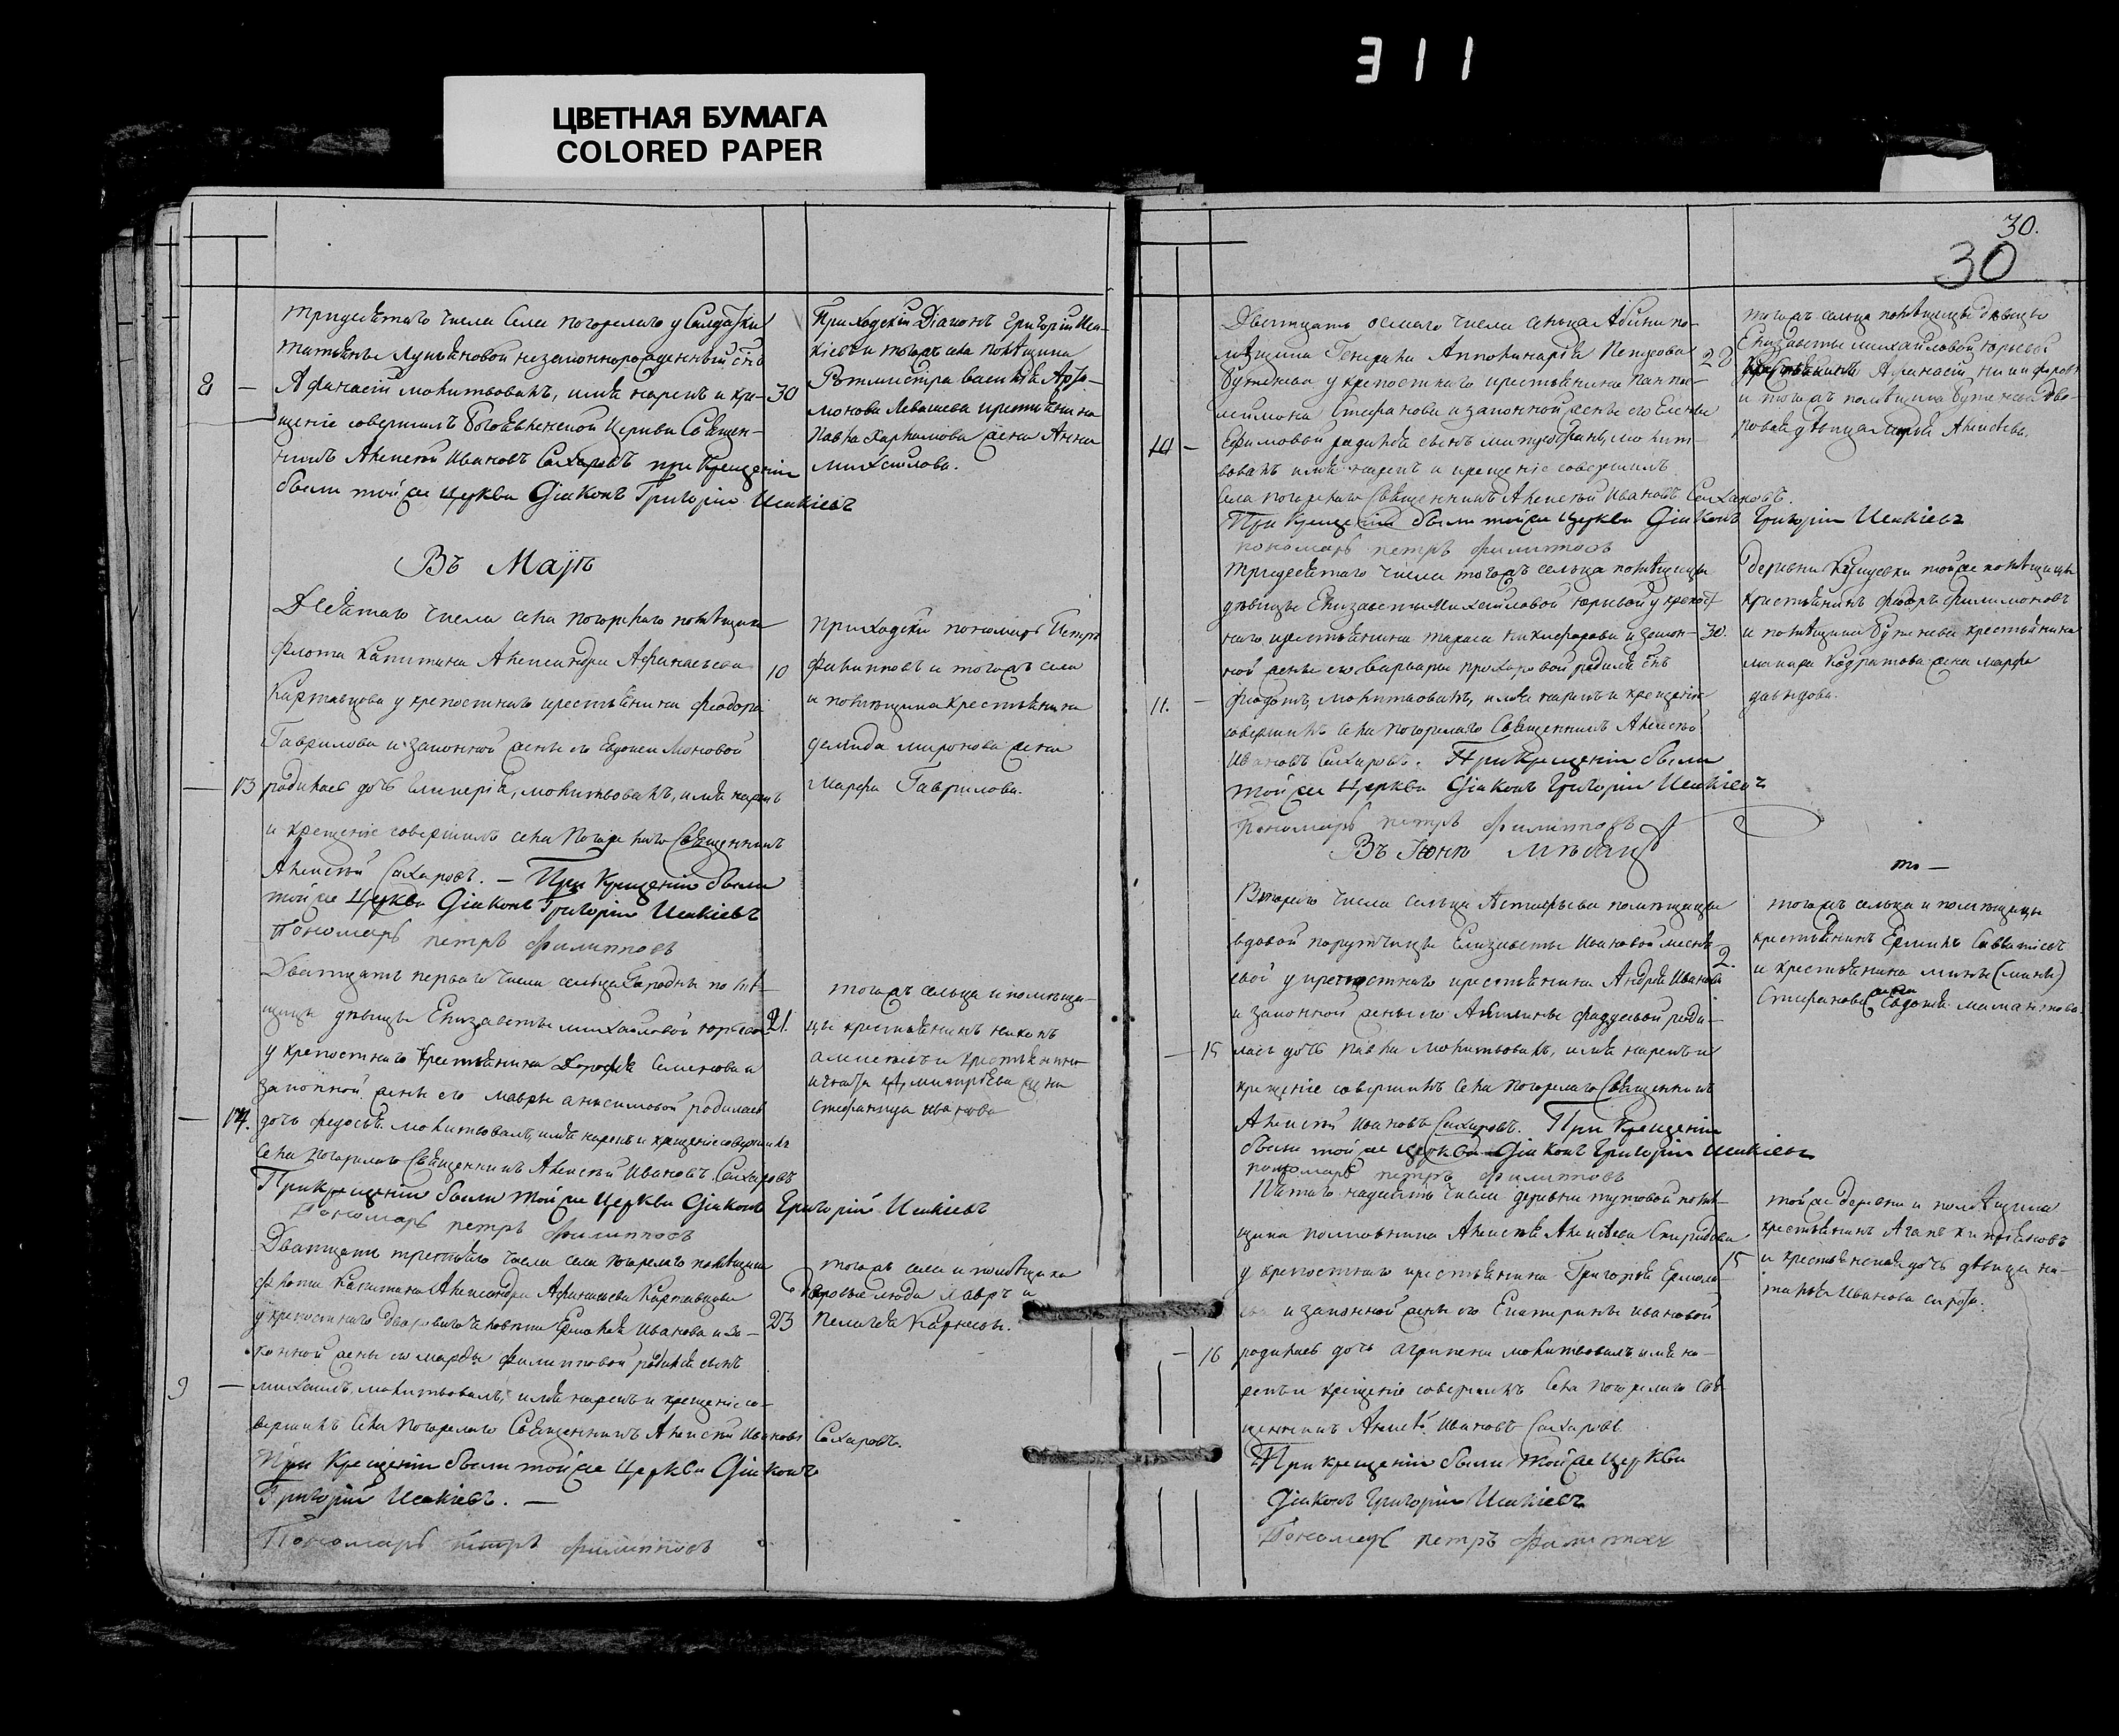 311
ЦВЕТНАЯ БУМАГА
COLORED PAPER
тридесятаго числа села погорелаго у Салдатки
Татьяны Лукьяновой незаконнорожденный снъ
8 — Афанасій молитвовалъ, имя нарекъ и кре- 30
щеніе совершилъ Богоявленской Церкви Священ-
никъ Алексей Ивановъ Сахаровъ при крещеніи
были той же Церкви Діаконъ Григорій Исакіевъ
Приходскій Діаконъ Григорій Иса-
кіевъ и тогожъ села помѣщика
Ротмистра Василія Арта-
монова Левашева крестьянина
Павла Харламова жена Анна
михайлова.
Въ Маіѣ
Девятаго числа села погорелаго помѣщика
флота Капитана Александра Афанасьева 10
Картавцова у крепостнаго крестьянина феодора
Гаврилова и законной жены его Евдокеи
13 родилась дочь Гликерія, молитвовалъ, имя нарекъ
и крещеніе совершилъ села Погорелаго Священникъ
Алексей Сахаровъ. — При Крещеніи были
той же Церкви Діаконъ Григорій Исакіевъ
Пономарь петръ филипповъ
приходски пономарь Петръ
Филипповъ и тогожъ села
и помѣщика крестьянина
демида миронова жена
Марфа Гаврилова.
Дватцать перваго числа сельца помѣ-
щицы дѣвицы Елизаветы михайловой юрьевой 21.
у крепостнаго крестьянина Дорофея Семенова и
законной жены его мавры анисимовой родилась
14. дочь федосья молитвовалъ, имя нарекъ и крещеніе совершилъ
села погорелаго Священникъ Алексей Ивановъ Сахаровъ
При крещеніи были той же Церкви Діаконъ Григорій Исакіевъ
Пономарь петръ филипповъ
тогожъ сельца и помѣщи-
цы крестьянинъ
и крестьянина
игнатья дмитріева жена
Стефанида иванова
Дватцать третьяго числа села погорелаго помѣщика
флота Капитана Александра Афанасьева Картавцова
у крепостнаго двороваго человека Ермолая Иванова и за- 23
конной жены его марфы филипповой родился сынъ
9 — михаилъ, молитвовалъ, имя нарекъ и крещеніе со-
вершилъ села погорелаго Священникъ Алексей Ивановъ Сахаровъ.
При крещеніи были той же Церкви Діаконъ
Григорій Исакіевъ. —
Пономарь петръ филипповъ
тогожъ села и помѣщика
дворовые люди Лавръ и
Пелагея Карповы.
30.
30
Дватцать осмаго числа сельца по-
мѣщика Генерала Апполинарія Петрова 28
Бутенева у крепостнаго крестьянина панте-
леймона Стефанова и законной жены его Елены
10 — Ефимовой родился сынъ митрофанъ, молит-
вовалъ имя нарекъ и крещеніе совершилъ
села погорелаго Священникъ Алексей Ивановъ Сахаровъ.
При крещеніи были той же Церкви Діаконъ Григорій Исакіевъ
пономарь петръ филипповъ
тогожъ сельца помѣщицы дѣвицы
Елизаветы михайловой юрьевой
крестьянинъ Афанасій никифоровъ
и тогожъ помѣщика Бутенева дво-
ровая дѣвица марья Алексѣева.
тридесятаго числа тогожъ сельца помѣщицы
дѣвицы Елизаветы Михайловой юрьевой у крепост-
наго крестьянина тараса никифорова и закон- 30.
ной жены его Варвары прохоровой родился снъ
11. — феодотъ, молитвовалъ, имя нарекъ и крещеніе
совершилъ села погорелаго Священникъ Алексей
Ивановъ Сахаровъ. При крещеніи были
той же Церкви Діаконъ Григорій Исакіевъ
Пономарь петръ филипповъ
деревни той же помѣщицы
крестьянинъ феодоръ филимоновъ
и помѣщика Бутенева крестьянина
макара Кодратова жена марфа
давыдова.
Въ Іюнѣ Мѣсяцѣ
Втораго числа сельца Астафьева помѣщицы
вдовой порутчицы Елизаветы Ивановой
у крепостнаго крестьянина Андрея Иванова 2.
и законной жены его Акилины фадѣевой роди-
— 15 лась дочь Павла молитвовалъ, имя нарекъ и
крещеніе совершилъ села погорелаго Священникъ
Алексей Ивановъ Сахаровъ. При крещеніи
были той же церкви Діаконъ Григорій Исакіевъ
пономарь петръ филипповъ
то —
тогожъ сельца и помѣщицы
крестьянинъ Ермилъ Савватіевъ
и крестьянина мины (мины)
Стефанова жена Евдокія мамантова.
Пятаго надесять числа деревни помѣ-
щика полковника Алексѣя Алексѣева Спиридова
у крепостнаго крестьянина Григорья Ермола- 15
ева и законной жены его Екатерины ивановой
— 16 родилась дочь агрипена молитвовалъ, имя на-
рекъ и крещеніе совершилъ села погорелаго Свя-
щенникъ Алексей Ивановъ Сахаровъ
При крещеніи были той же церкви
Діаконъ Григорій Исакіевъ
Пономарь петръ филипповъ
той же деревни и помѣщика
крестьянинъ
и крестьянская дочь дѣвица на-
талья Иванова сирота.